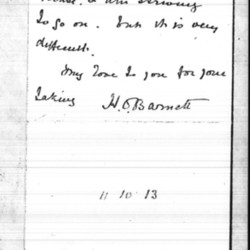 I am striving
to go on. but it is very
difficult.
My love to you for your
H.O. Barnett
11 10 13